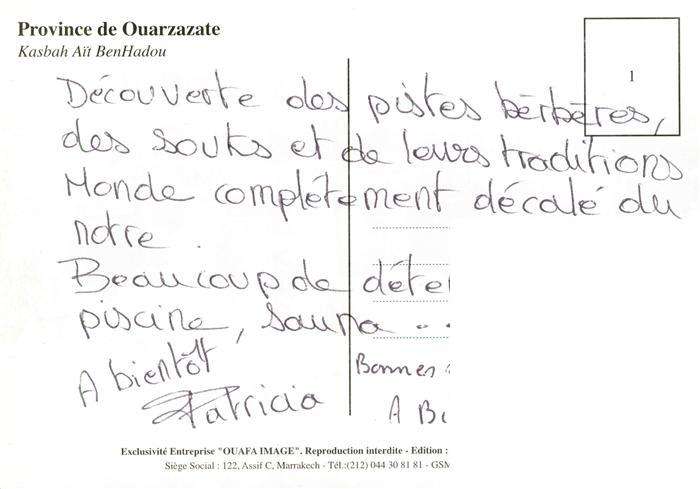 Province de Ouarzazate
Kasbah Aït BenHadou
1
Découverte des pistes berbères,
des souks et de leurs traditions
Monde complètement décalé du
notre.
Beaucoup de déte
piscine, sauna ...
A bientôt
Patricia
Bonnes
A Bi
Exclusivité Entreprise "OUAFA IMAGE". Reproduction interdite - Edition :
Siège Social : 122, Assif C, Marrakech - Tél.:(212) 044 30 81 81 - GSM